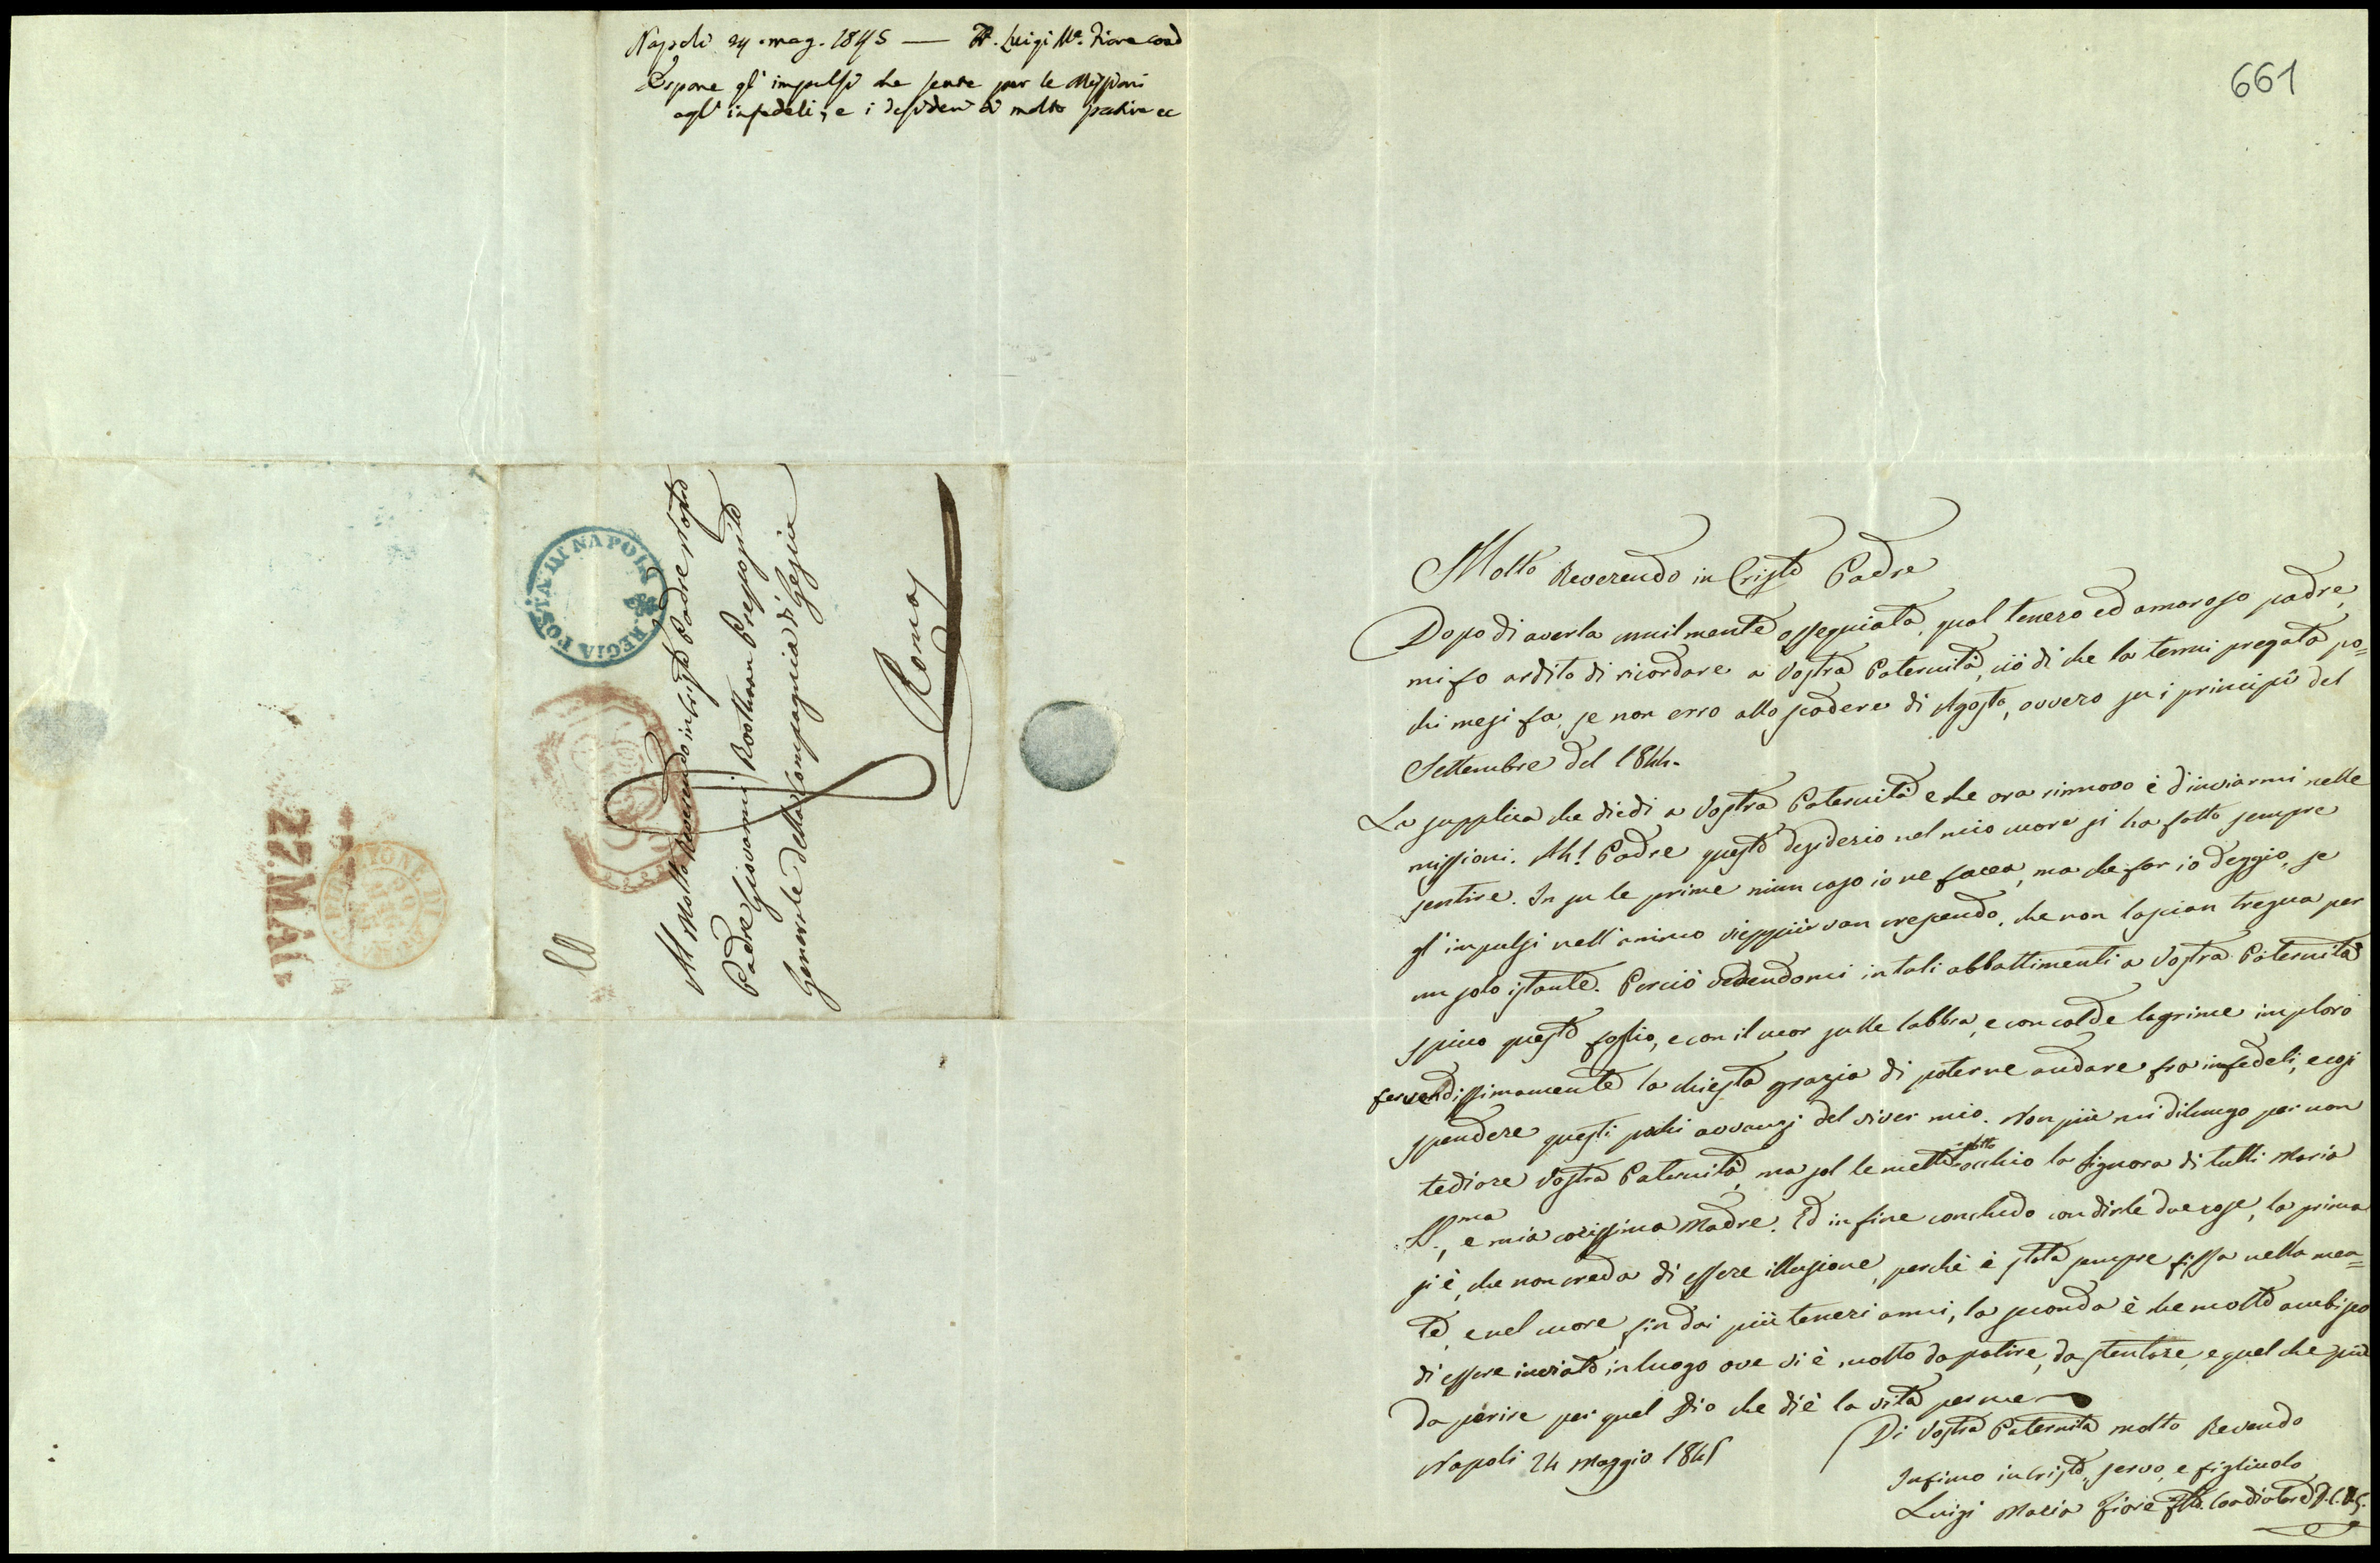 Napoli 24. mag. 1845 — F. Luigi Ma. Fiore coad
Espone gl'impulsi che sente per le Missioni
agl'infedeli, e i desideri di molto patire ec
661
REGIA POSTA DI NAPOLI
Al Molto Reverendo in Cristo Padre Nostro
Padre Giovanni Roothaan Preposito
Generale della Compagnia di Gesù
Roma
27. MAI.
DIREZIONE DI
Molto Reverendo in Cristo Padre
Dopo di averla umilmente ossequiata, qual tenero ed amoroso padre,
mi fo ardito di ricordare a Vostra Paternità, ciò di che la tenni pregata po=
chi mesi fa, se non erro allo scadere di Agosto, ovvero su i principii del
Settembre del 1844.
La supplica che diedi a Vostra Paternità e che ora rinnovo è d'inviarmi nelle
missioni. Ah! Padre questo desiderio nel mio cuore si ha fatto sempre
sentire. In su le prime niun caso io ne facea, ma che far io deggio, se
gl'impulsi nell'animo vieppiù van crescendo, che non lascian tregua per
un solo istante. Perciò vedendomi in tali abbattimenti a Vostra Paternità
spicco questo foglio, e con il cuor sulle labbra, e con calde lagrime imploro
fervendissimamente la chiesta grazia di poterne andare fra infedeli, e così
spendere questi pochi avvanzi del viver mio. Non più mi dilungo per non
tediare Vostra Paternità, ma sol le metto sott'occhio la Signora di tutti Maria
SS.ma, e mia carissima Madre. Ed in fine conchiudo con dirle due cose, la prima
si è, che non creda di essere illusione, perchè è stata sempre fissa nella men=
te, e nel cuore, fin dai più teneri anni, la seconda è che molto ambisco
di essere inviato in luogo ove vi è molto da patire, da stentare, e quel che più
da perire per quel Dio che diè la vita per me
Di Vostra Paternità molto Revendo
Napoli 24 Maggio 1845
Infimo in Cristo, servo, e figliuolo
Luigi Maria Fiore Coadiutore D.C.D.G.